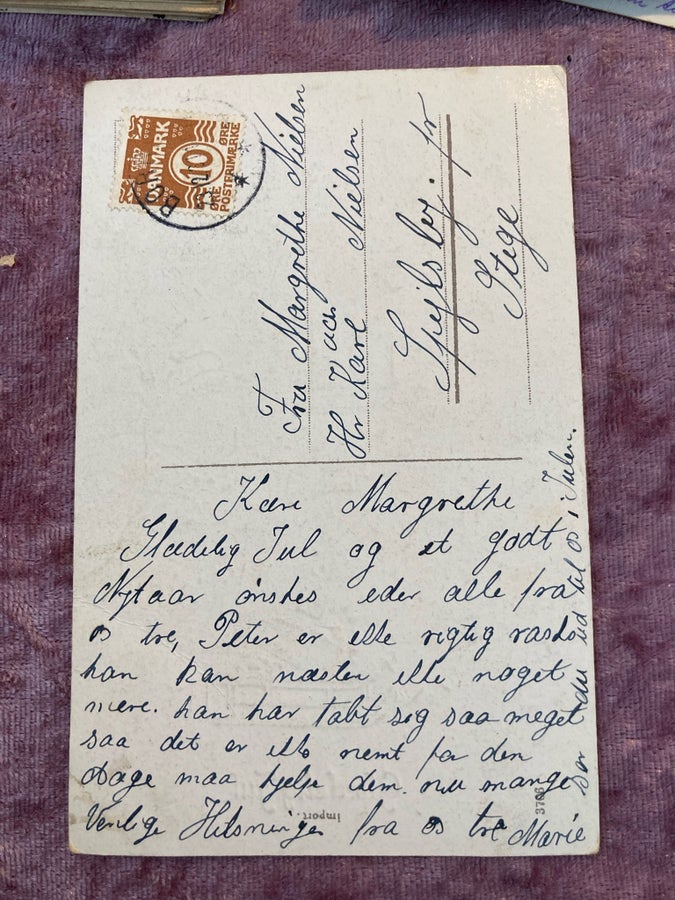 DANMARK
10
ØRE
ØRE
POSTFRIMÆRKE
Fru Margrethe Nielsen
adr
Hr Karl Nielsen
Spejlsby. pr
Stege
Kære Margrethe
Glædelig Jul og et godt
Nytaar ønskes eder alle fra
os tre, Peter er ikke rigtig rask
han kan næsten ikke noget
mere. han har tabt sig saa meget
saa det er ikke nemt for den
Dage maa hjelpe dem. nu mange
Venlige Hilsninger fra os tre Marie
du ud til os i Julen.
Import.
3706